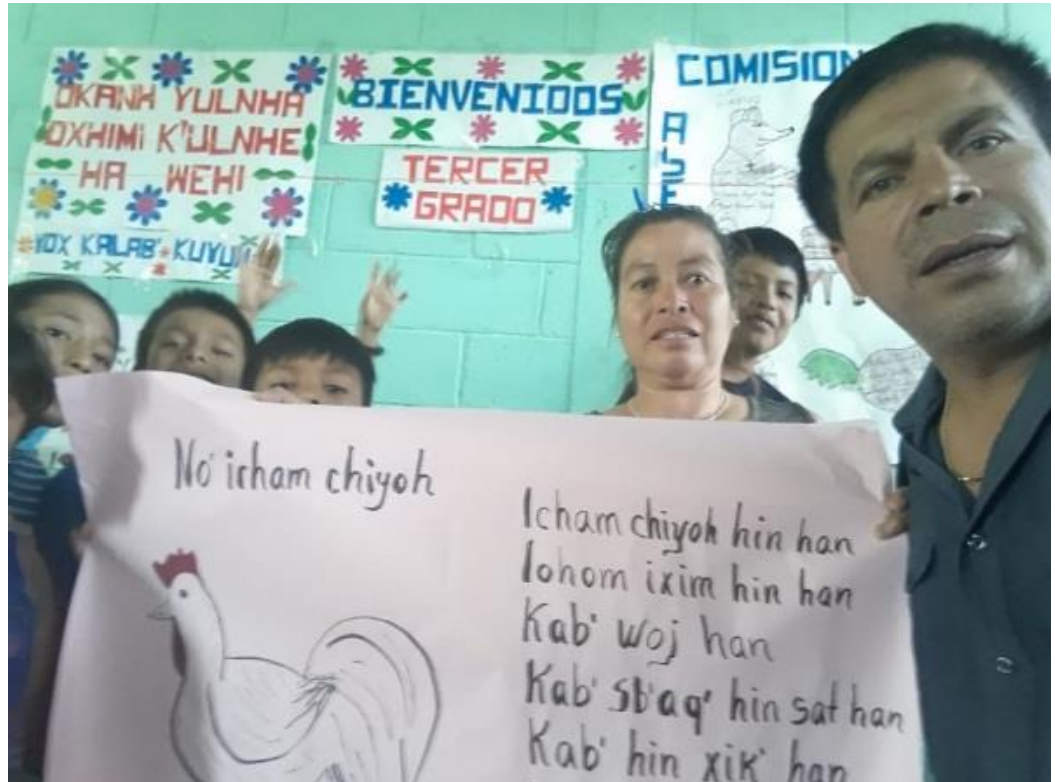 OKANH YULNHA
OXHIMI K'ULNHE
HA WEHI
YOX KALAB' KUYUM
BIENVENIDOS
TERCER
GRADO
COMISION
ASE
No' icham chiyoh
Icham chiyoh hin han
lohom ixim hin han
Kab' woj han
Kab' sb'aq' hin sat han
Kab' hin xik' han